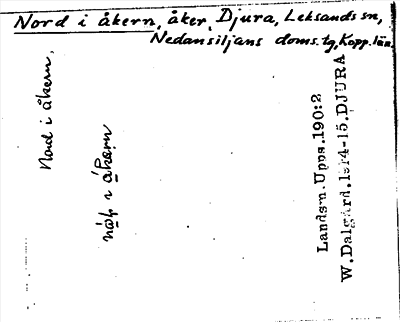 Nord i åkern, åker, Djura, Leksands sn,
Nedansiljans doms.tg, Kopp. län.
Nord i åkern,
i åkæɳ
Landsm. Upps. 190:2
W. Dalgård. 1914-15. DJURA